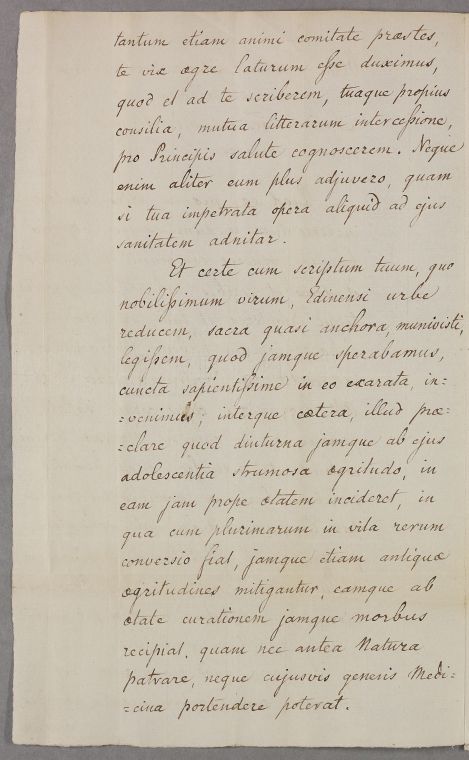 tantum etiam animi comitate præstes,
te vix ægre laturum eſse duximus,
quod et ad te scriberem, tuaque propius
consilia, mutua litterarum interceſsione,
pro Principis salute cognoscerem. Neque
enim aliter eum plus adjuvero, quam
si tua impetrata opera aliquid ad ejus
sanitatem adnitar.
Et certe cum scriptum tuum, quo
nobiliſsimum virum, Edinensi urbe
reducem, sacra quasi anchora, munivisti,
legiſsem, quod jamque sperabamus,
cuncta sapientiſsime in eo exarata, in=
=venimus; interque cætera, illud præ=
=clare quod diuturna jamque ab ejus
adolescentia strumosa ægritudo, in
eam jam prope ætatem incideret, in
qua cum plurimarum in vita rerum
conversio fiat, jamque etiam antiquæ
ægritudines mitigantur, eamque ab
ætate curationem jamque morbus
recipiat, quam nec antea Natura
patrare, neque cujusvis generis Medi=
=cina portendere poterat.